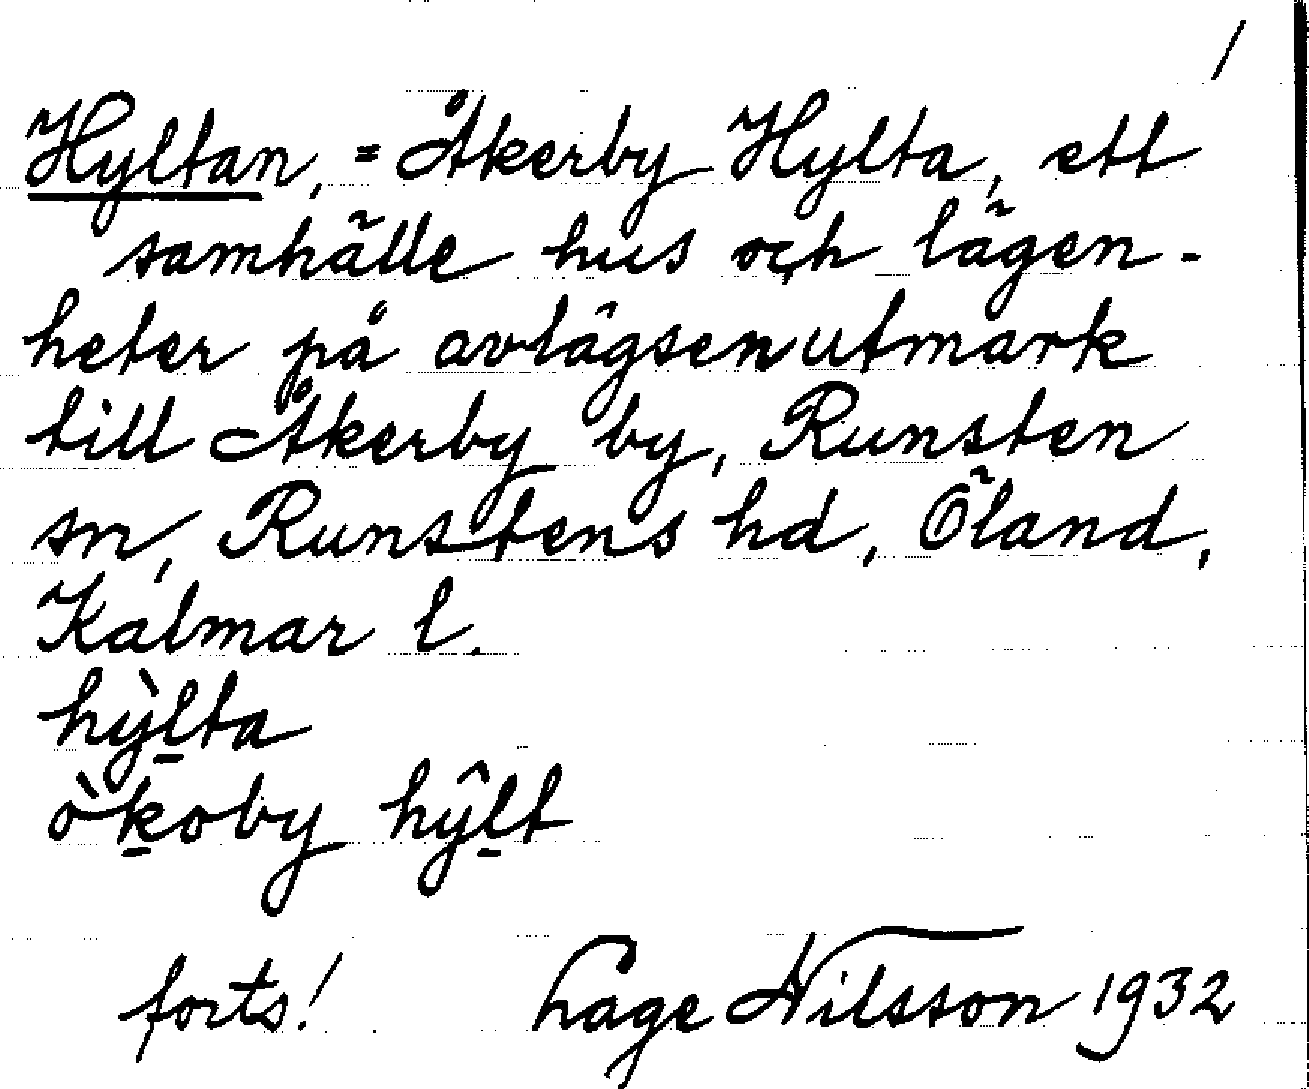 /
Hyltan, = Åkerby Hylta, ett
samhälle hus och lägen-
heter på avlägsen utmark
till Åkerby by, Runsten
sn, Runstens hd, Öland,
Kalmar l.
hỳl̠ta
òk̠oby hŷl̠t
forts! Lage Nilsson 1932